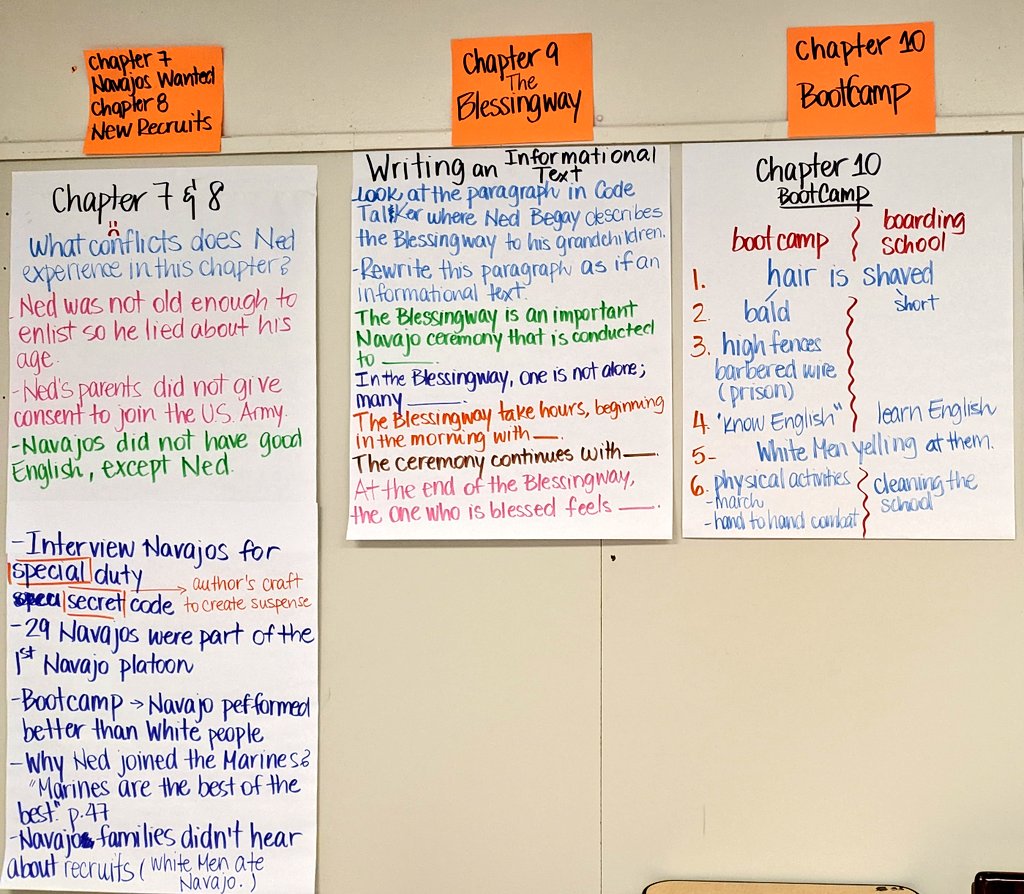 Chapter 7
Navajos Wanted
Chapter 8
New Recruits
Chapter 7 & 8
What conflicts does Ned
experience in this chapter?
- Ned was not old enough to
enlist so he lied about his
age.
- Ned's parents did not give
consent to join the U.S. Army.
- Navajos did not have good
English, except Ned.
- Interview Navajos for
special duty
secret code
→ author's craft
to create suspense
- 29 Navajos were part of the
1st Navajo platoon
- Bootcamp → Navajo performed
better than White people
- Why Ned joined the Marines?
"Marines are the best of the
best." p.47
- Navajo families didn't hear
about recruits (White Men ate
Navajo.)
Chapter 9
The
Blessingway
Writing an Informational
Text
- Look at the paragraph in Code
Talker where Ned Begay describes
the Blessingway to his grandchildren.
- Rewrite this paragraph as if an
informational text.
The Blessingway is an important
Navajo ceremony that is conducted
to ____.
In the Blessingway, one is not alone;
many ____.
The Blessingway take hours, beginning
in the morning with ___.
The ceremony continues with ___.
At the end of the Blessingway,
the one who is blessed feels ___.
Chapter 10
BootCamp
Chapter 10
BootCamp
bootcamp boarding
school
1. hair is shaved
2. bald short
3. high fences
barbered wire
(prison)
4. "know English" learn English
5- White Men yelling at them.
6. physical activities cleaning the
- march school
- hand to hand combat